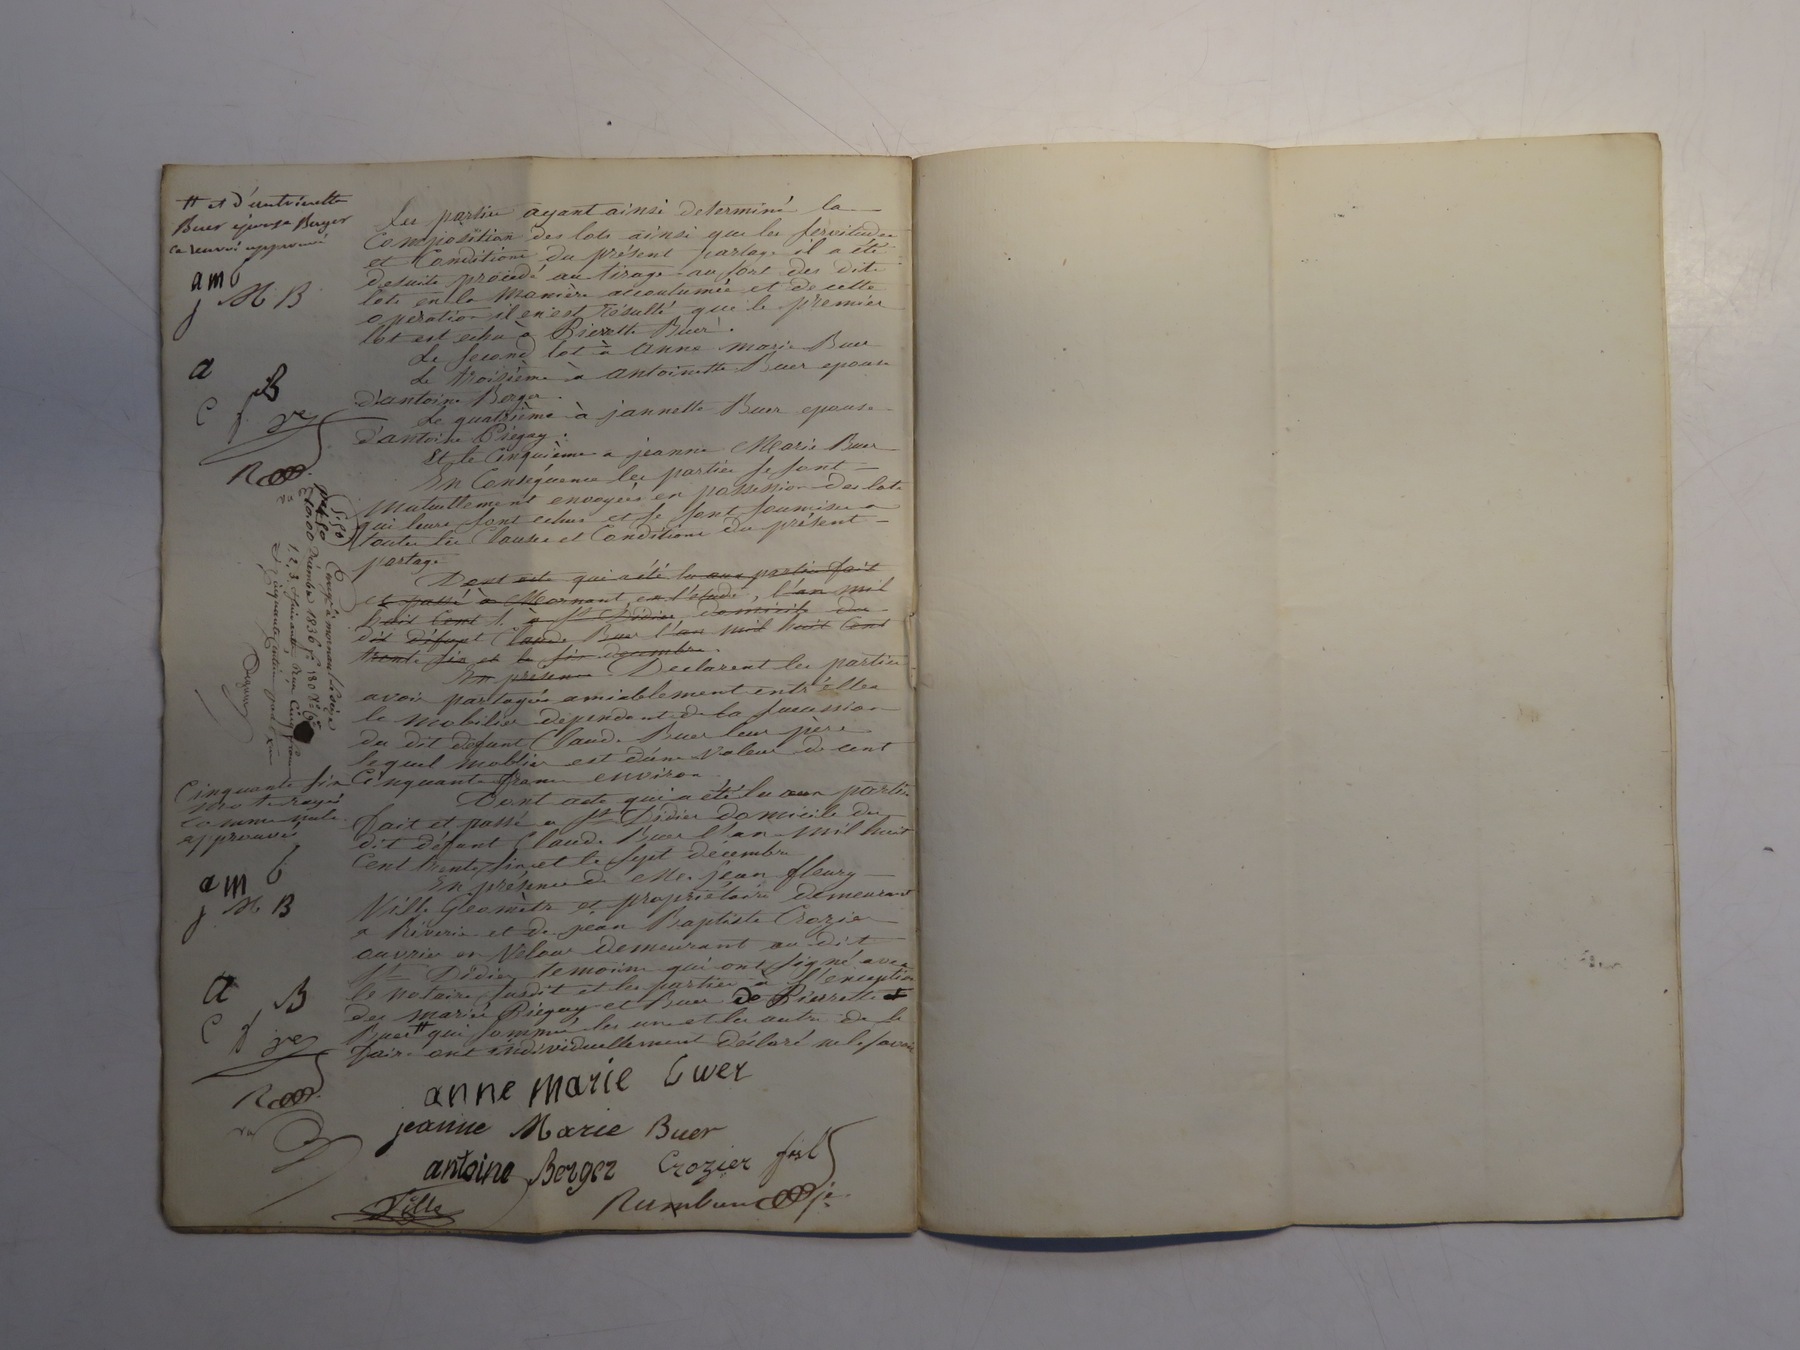 # et d'antoinette
Buer épouse Berger
ce renvoi approuvé
am b
j M B
a B
C f
R
Les parties ayant ainsi determiné la
Composition des lots ainsi que les servitudes
et Conditions du présent partage il a été
desuite procédé au tirage au sort des dits
lots en la Manière accoutumée et de cette
operation il en est résulté que le premier
lot est echu à Pierrette Buer.
Le second lot à anne marie Buer
Le troisième à antoinette Buer epouse
d'antoine Berger.
Le quatrième à jannette Buer epouse
d'antoine Piégay.
Et le Cinquième a jeanne Marie Buer
En Conséquence les parties se sont
Mutuellement envoyées en possession des lots
qui leurs sont echus et se sont soumises a
toutes les Clauses et Conditions du présent
partage
Dont acte qui a été lu aux parties fait
et passé à Mornant en l'étude, l'an mil
huit Cent à St Didier domicile du
dit défunt Claude Buer l'an mil huit Cent
trente six et le six decembre.
En présence Declarent les parties
avoir partagés amiablement entr'elles
le mobilier dépendant de la succession
du dit défunt Claude Buer leur père
lequel mobilier est d'une valeur de cent
Cinquante francs environ
Dont acte qui a été lu aux parties
fait et passé a St Didier domicile du
dit défunt Claude Buer l'an mil huit
Cent trente six et le sept décembre
En présence de Mr. jean fleury
Ville Géomètre et propriétaire demeurant
a Riverie et de jean Baptiste Crozier
ouvrier en Velour demeurant au dit
St Didier temoins qui ont signé avec
le notaire susdit et les parties à l'exception
des mariés Piégay et Buer de Pierrette et
Buer # qui sommés les uns et les autres de le
faire ont individuellement déclaré ne le savoir
Enregé à mornant le dix
décembre 1836 f° 180
Cinquante six
mots rayés
comme nuls
approuvés
am b
j M B
a B
C f
R
anne marie buer
jeanne Marie Buer
antoine Berger Crozier fils
Ville